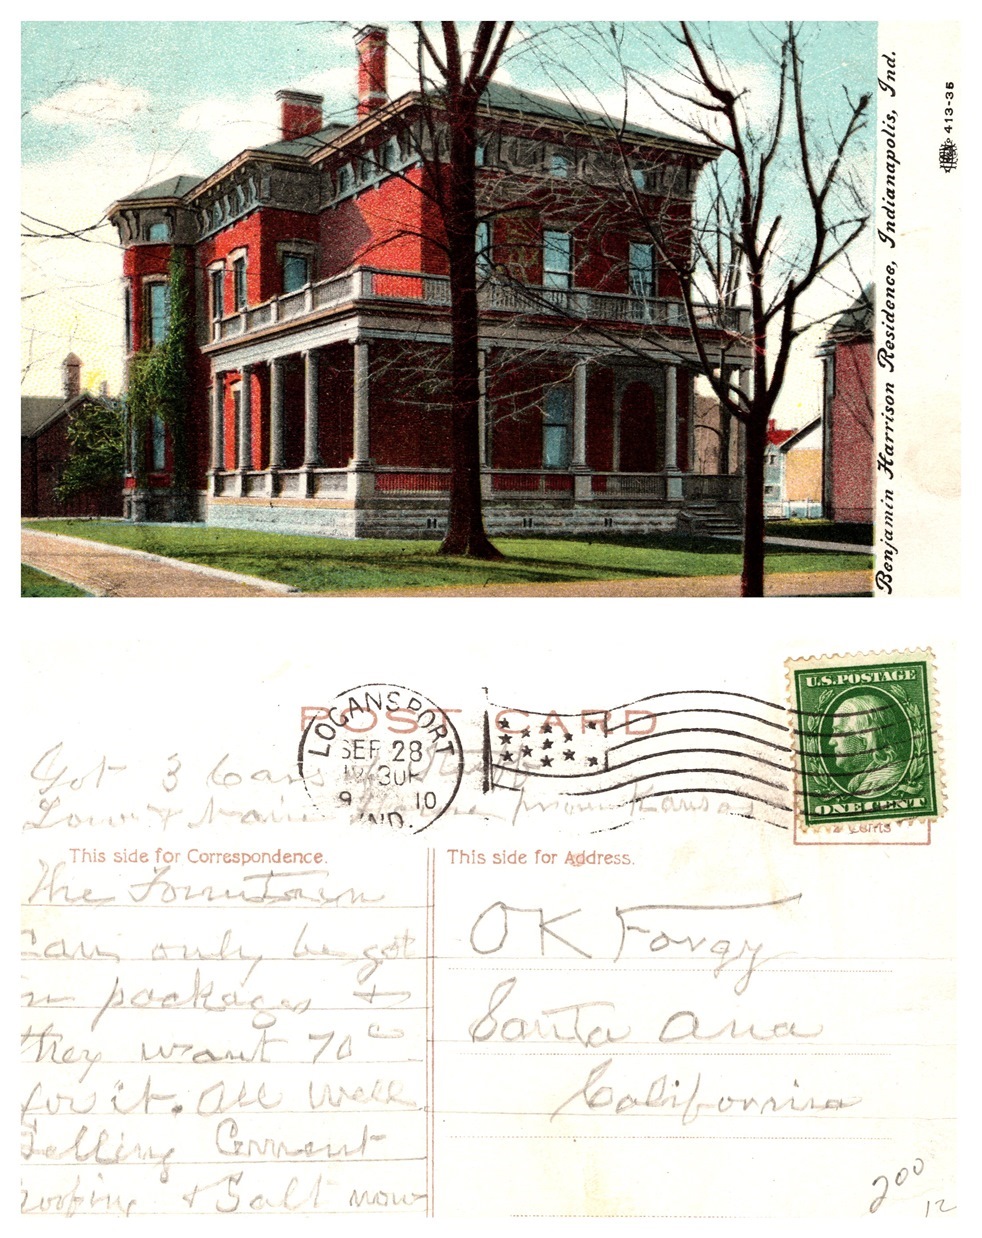 Benjamin Harrison Residence, Indianapolis, Ind.
413-35
POST CARD
LOGANSPORT
SEP 28
30P
9 10
IND.
U.S. POSTAGE
ONE CENT
Got 3 Cars
Kansas
This side for Correspondence.
The Fountain
can only be got
in packages &
they want 70c
for it. All well
Selling Cement
roofing & Salt now
This side for Address.
OK Forgy
Santa Ana
California
200
12